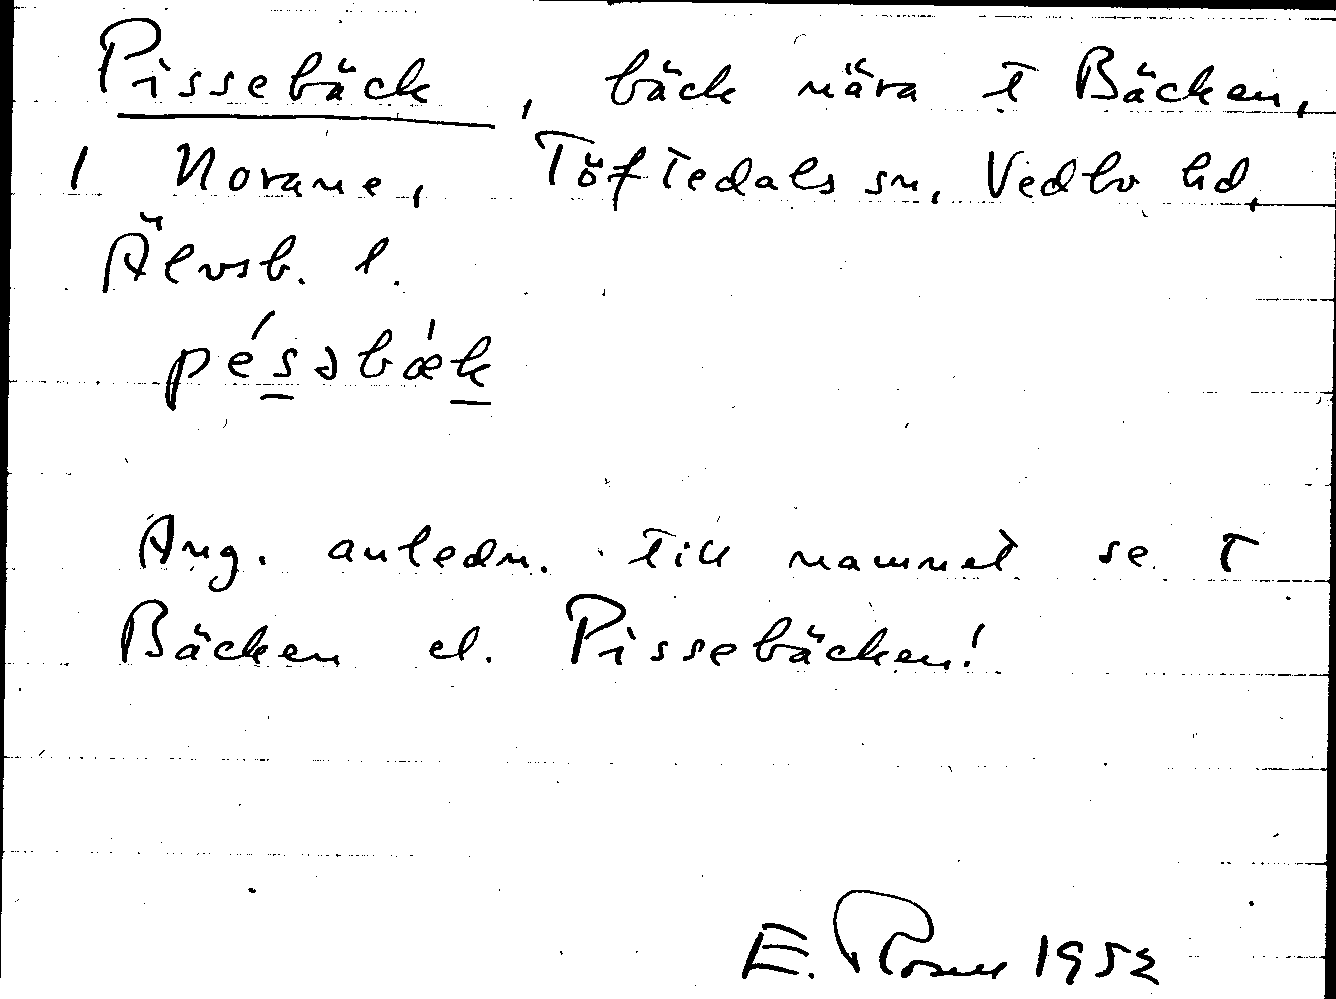 Pissebäck, bäck nära t Bäcken,
1 Norane, Töftedals sn, Vedbo hd,
Älvsb. l.
péssəbæ'k
Ang. anledn. till namnet se t
Bäcken el. Pissebäcken!
E. 1952